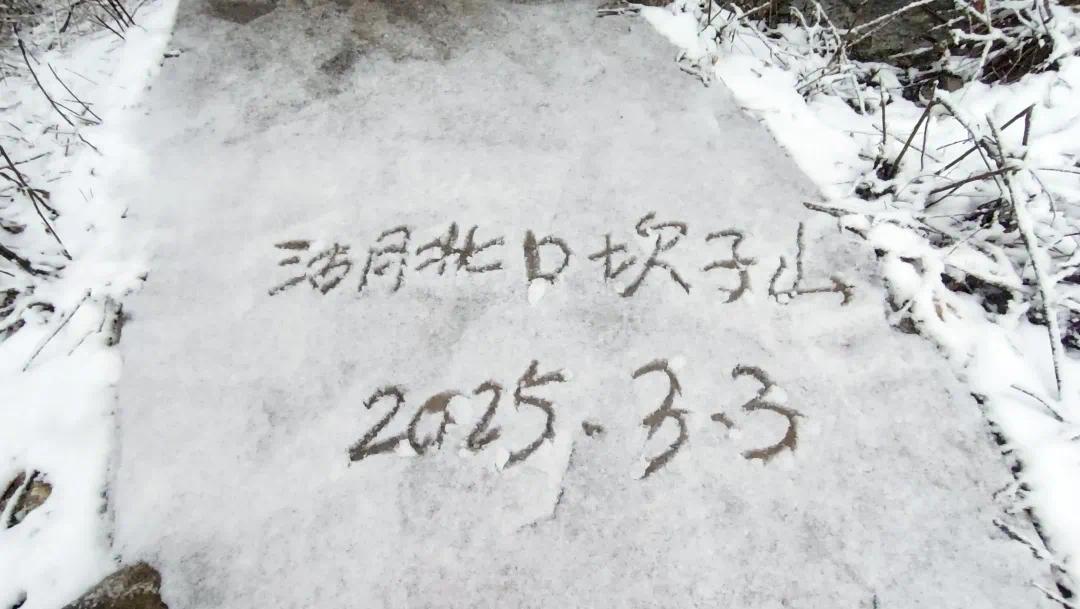 湖北口坎子山
2025.3.3